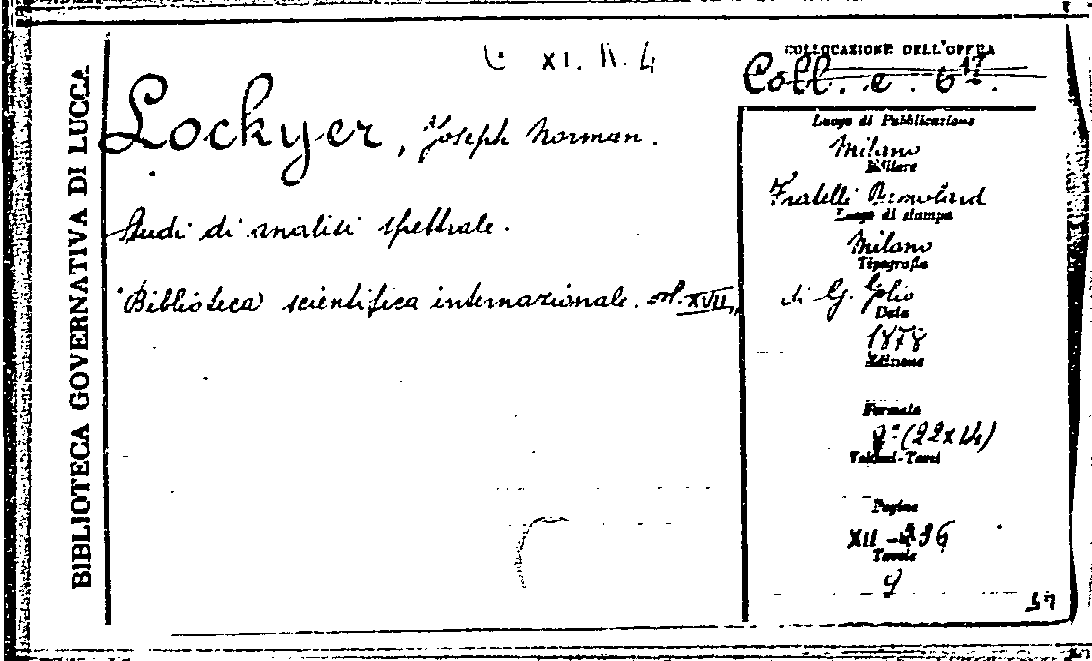 BIBLIOTECA GOVERNATIVA DI LUCCA
XI. II. 4
Lockyer, Joseph Norman.
Studi di analisi spettrale.
Biblioteca scientifica internazionale. vol. XVII
COLLOCAZIONE DELL'OPERA
Coll. e. 6
Luogo di Pubblicazione
Milano
Editore
Fratelli Dumolard
Luogo di stampa
Milano
Tipografia
di G. Golio
Data
1878
Edizione
Formato
8º (22x14)
Volumi-Tomi
Pagine
XII
Tavole